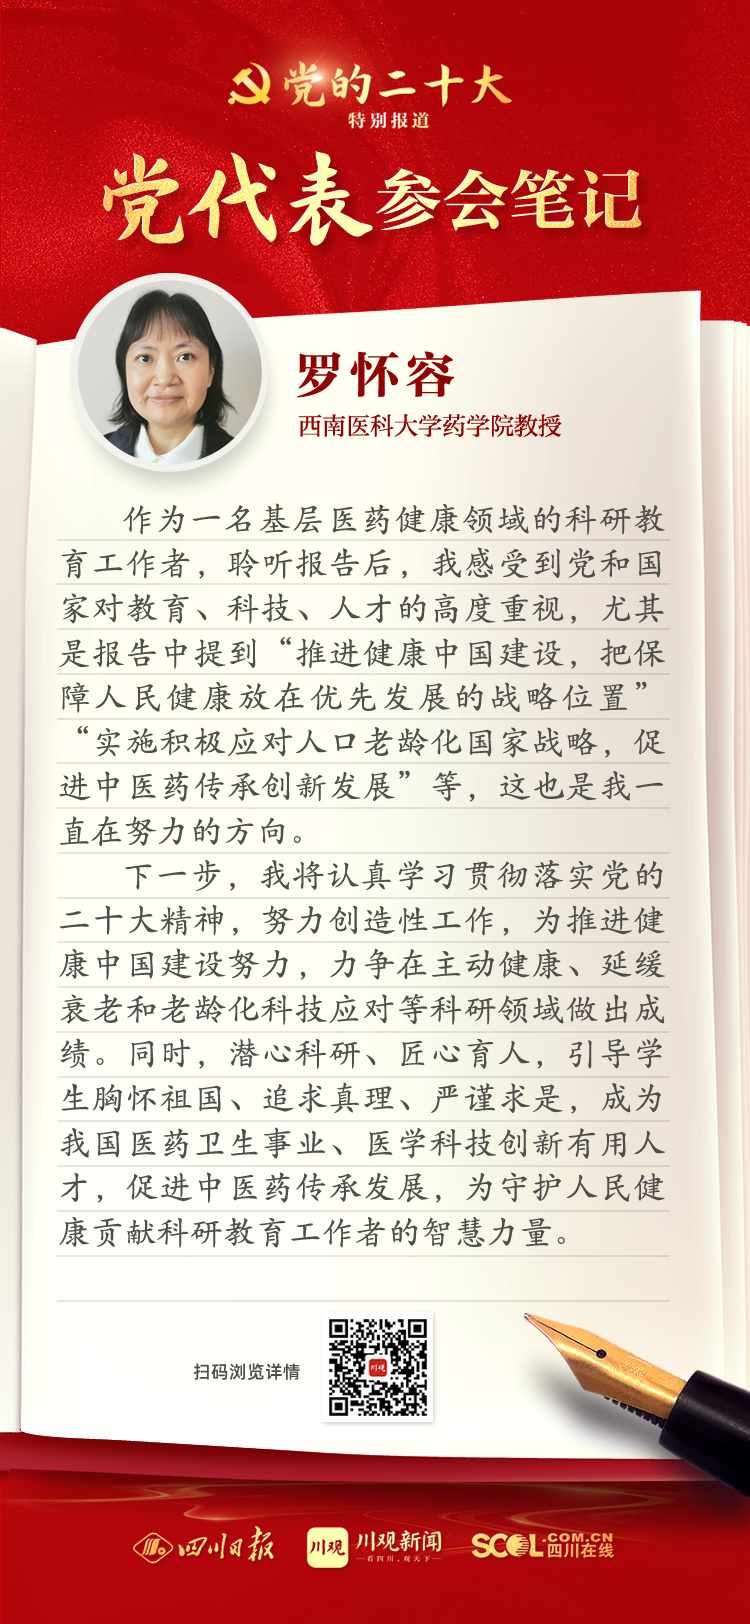 党的二十大
特别报道
党代表参会笔记
罗怀容
西南医科大学药学院教授
作为一名基层医药健康领域的科研教
育工作者，聆听报告后，我感受到党和国
家对教育、科技、人才的高度重视，尤其
是报告中提到“推进健康中国建设，把保
障人民健康放在优先发展的战略位置”
“实施积极应对人口老龄化国家战略，促
进中医药传承创新发展”等，这也是我一
直在努力的方向。
下一步，我将认真学习贯彻落实党的
二十大精神，努力创造性工作，为推进健
康中国建设努力，力争在主动健康、延缓
衰老和老龄化科技应对等科研领域做出成
绩。同时，潜心科研、匠心育人，引导学
生胸怀祖国、追求真理、严谨求是，成为
我国医药卫生事业、医学科技创新有用人
才，促进中医药传承发展，为守护人民健
康贡献科研教育工作者的智慧力量。
扫码浏览详情
川观
四川日报
川观
川观新闻
看四川，观天下
SCOL.COM.CN
四川在线